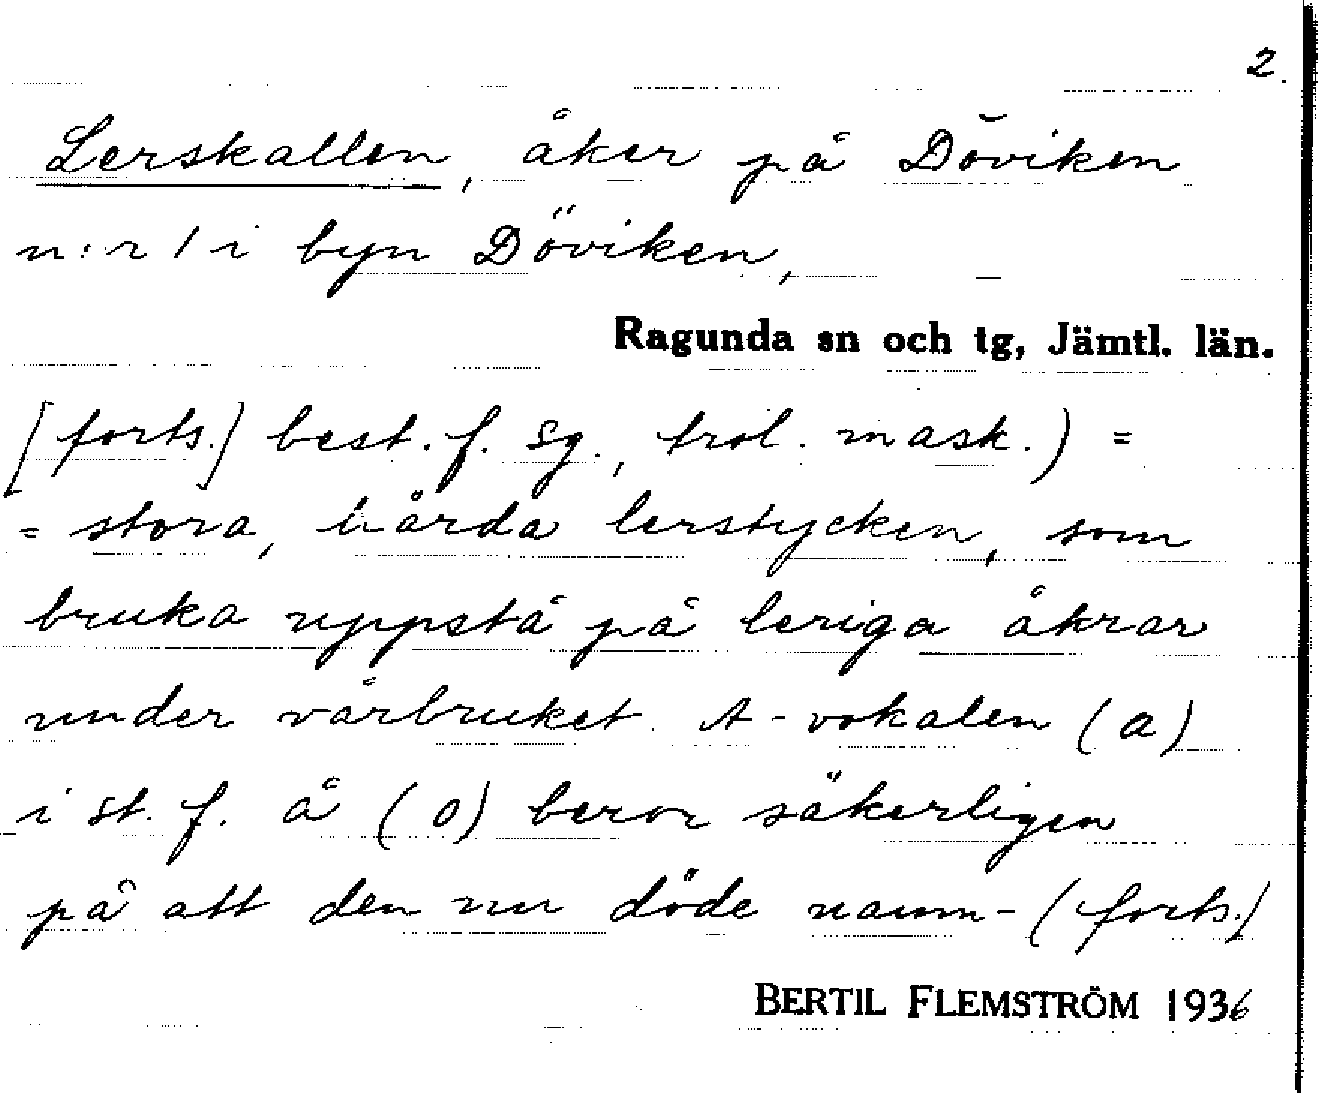 2.
Lerskallen, åker på Döviken
n:r 1 i byn Döviken,
Ragunda sn och tg, Jämtl. län.
[forts.] best. f. sg., trol. mask.) =
= stora, hårda lerstycken, som
bruka uppstå på leriga åkrar
under vårbruket. A-vokalen (a)
i st. f. å (o) beror säkerligen
på att den nu döde namn- (forts.)
BERTIL FLEMSTRÖM 1936